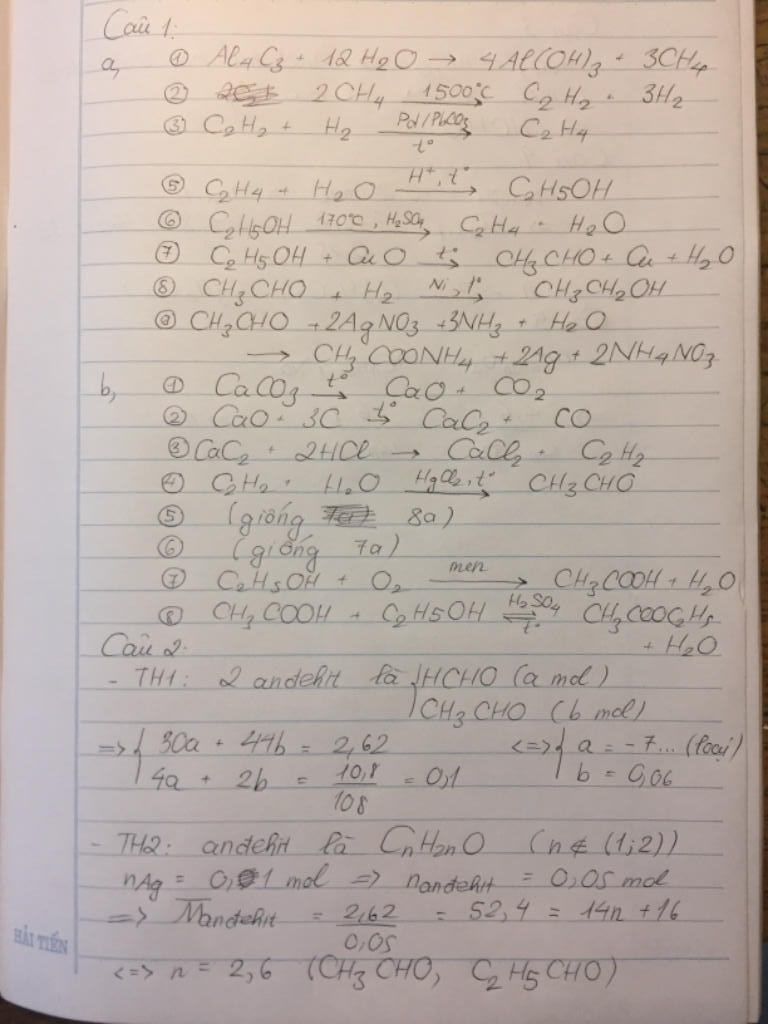 Câu 1:
a, ① Al4C3 + 12H2O → 4Al(OH)3 + 3CH4
② 2CH4 1500°C → C2H2 + 3H2
③ C2H2 + H2 Pd/PbCO3 t° → C2H4
⑤ C2H4 + H2O H+, t° → C2H5OH
⑥ C2H5OH 170°C, H2SO4 → C2H4 + H2O
⑦ C2H5OH + CuO t° → CH3CHO + Cu + H2O
⑧ CH3CHO + H2 Ni, t° → CH3CH2OH
⑨ CH3CHO + 2AgNO3 + 3NH3 + H2O
→ CH3COONH4 + 2Ag + 2NH4NO3
b, ① CaCO3 t° → CaO + CO2
② CaO + 3C t° → CaC2 + CO
③ CaC2 + 2HCl → CaCl2 + C2H2
④ C2H2 + H2O HgCl2, t° → CH3CHO
⑤ (giống 8a)
⑥ (giống 7a)
⑦ C2H5OH + O2 men → CH3COOH + H2O
⑧ CH3COOH + C2H5OH H2SO4 ⇌ t° CH3COOC2H5
+ H2O
Câu 2:
- TH1: 2 anđehit là { HCHO (a mol)
CH3CHO (b mol)
=> { 30a + 44b = 2,62 <=> { a = -7... (loại)
4a + 2b = 10,8/108 = 0,1 b = 0,06
- TH2: anđehit là CnH2nO (n ∉ (1;2))
nAg = 0,1 mol => nanđehit = 0,05 mol
=> M̅anđehit = 2,62/0,05 = 52,4 = 14n + 16
<=> n = 2,6 (CH3CHO, C2H5CHO)
HẢI TIẾN